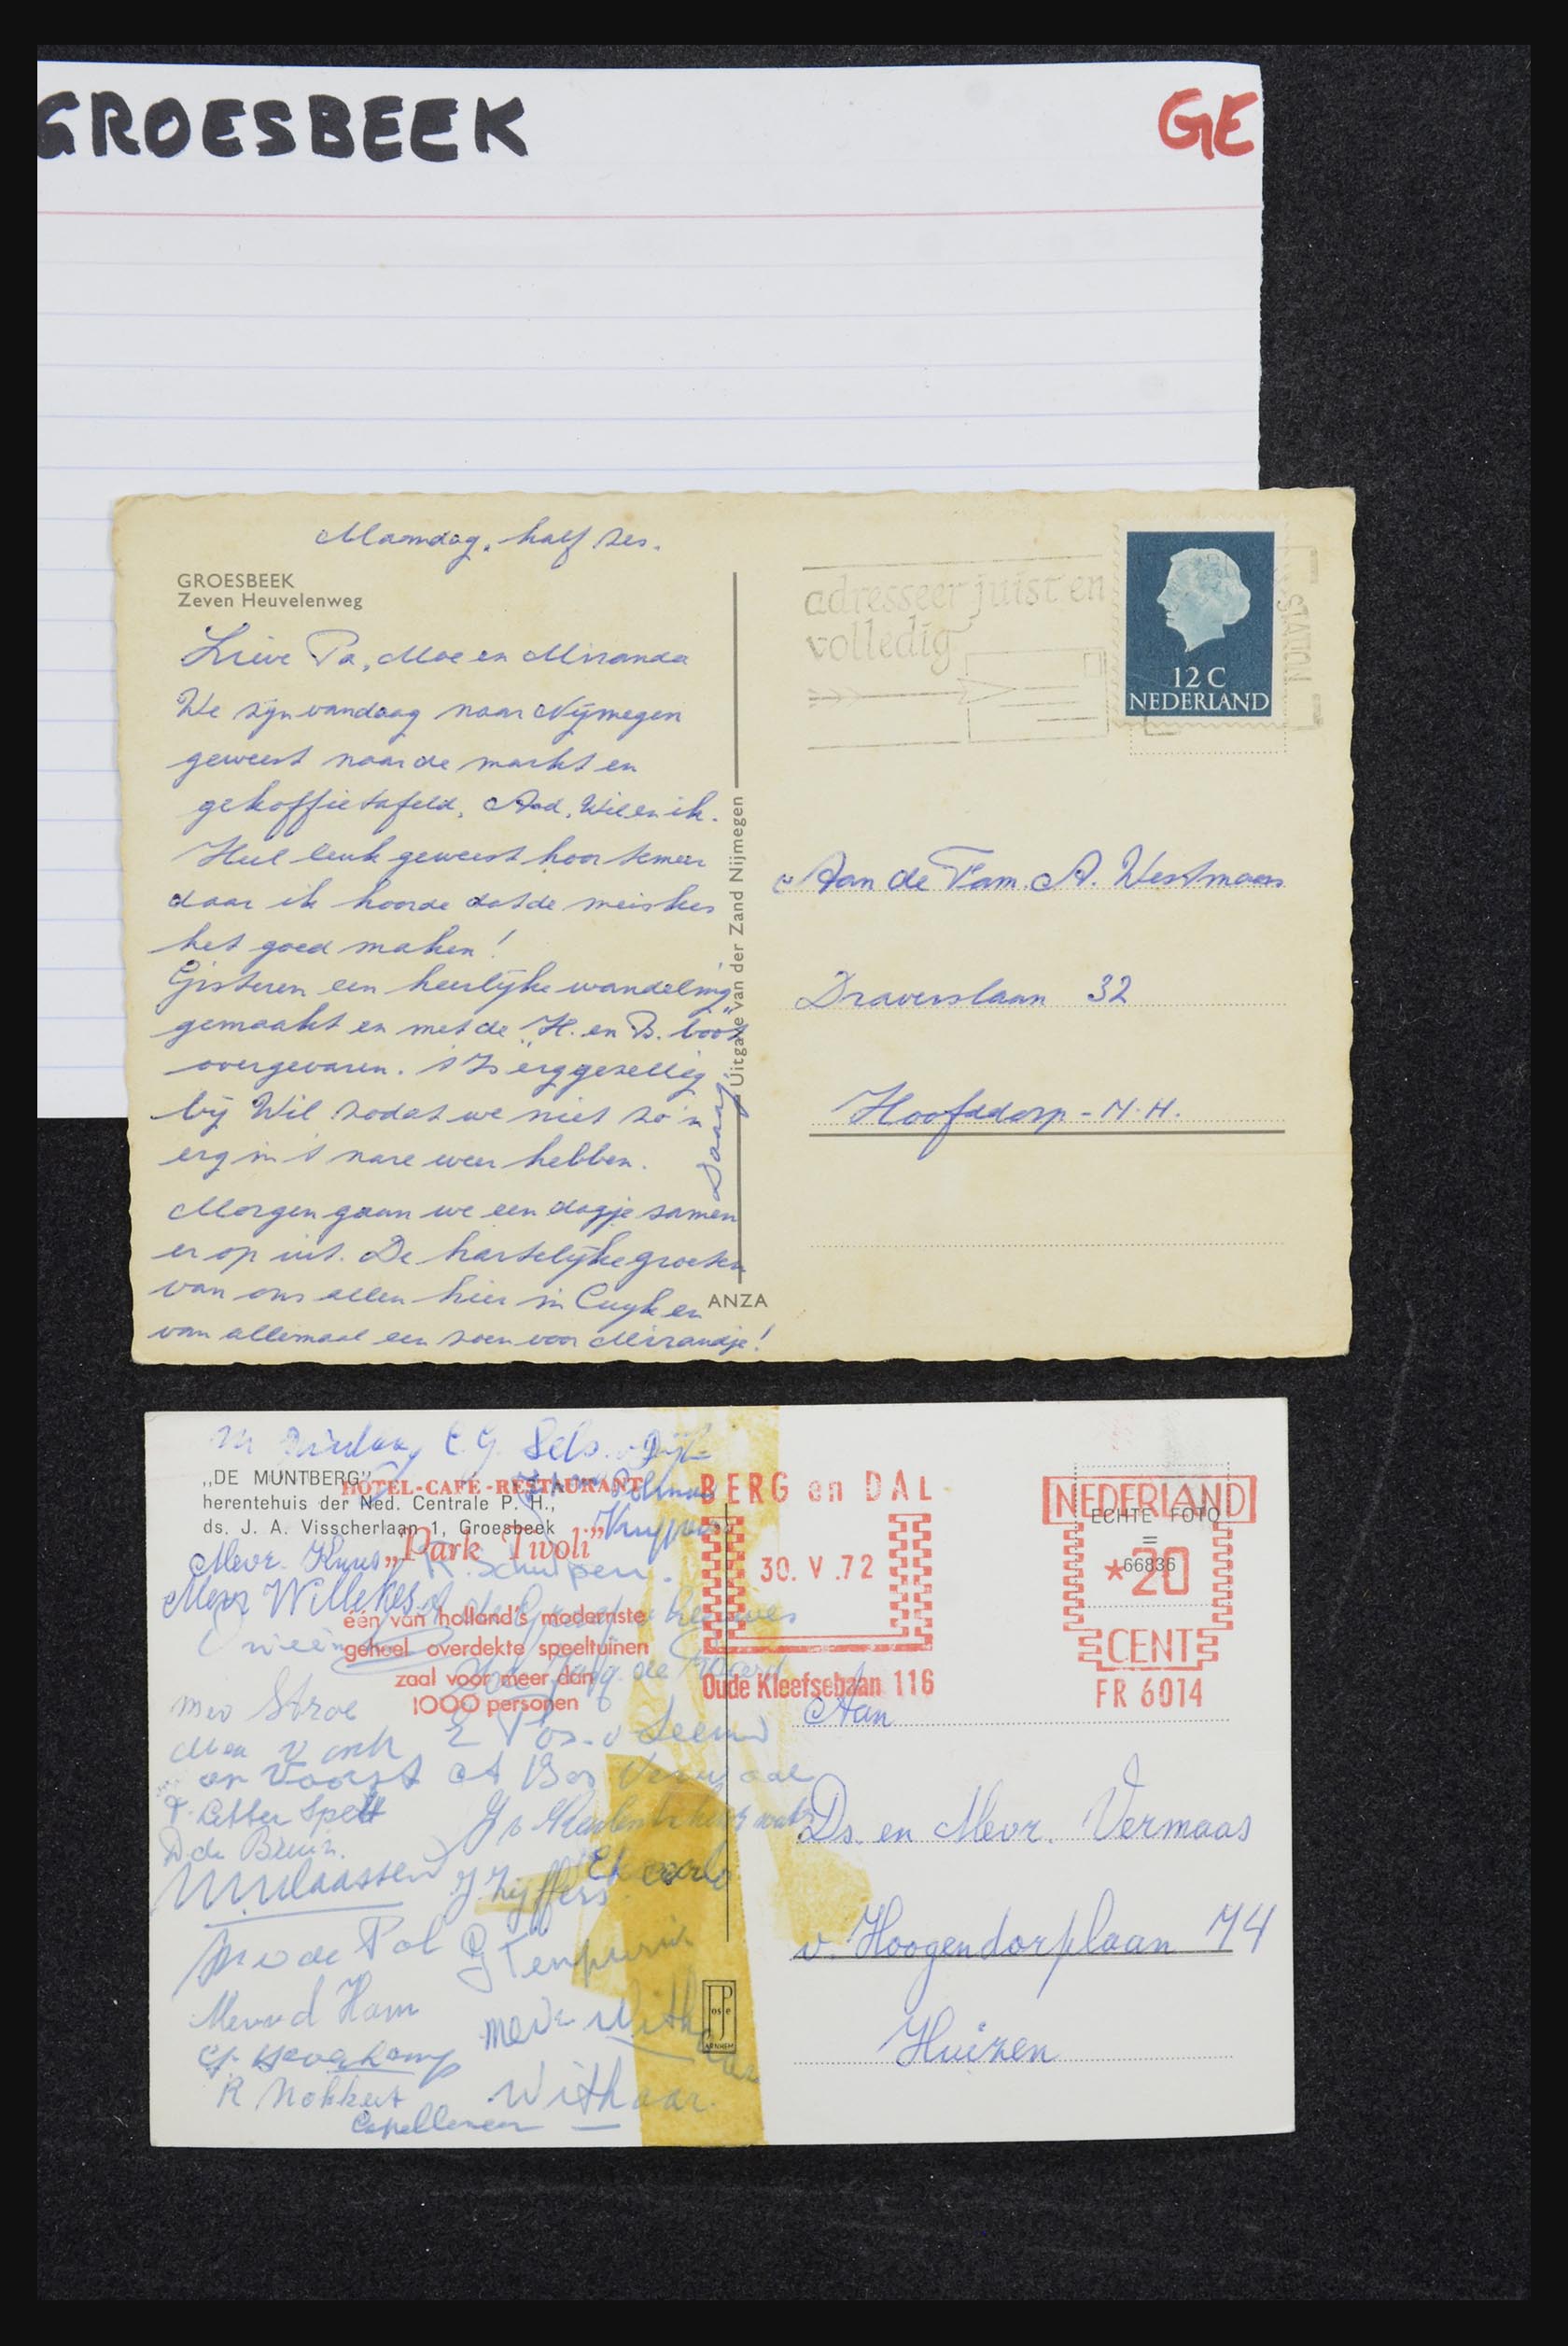 GROESBEEK
GE
Maandag, half zes.
GROESBEEK
Zeven Heuvelenweg
Lieve Pa, Moe en Miranda
We zijn vandaag naar Nijmegen
geweest naar de markt en
gekoffietafeld, Aad, Wil en ik.
Heel leuk geweest hoor temeer
daar ik hoorde dat de meiskes
het goed maken!
Gisteren een heerlijke wandeling
gemaakt en met de "H. en B. boot"
overgevaren. 't Is erg gezellig
bij Wil zodat we niet zo'n
erg in 't nare weer hebben.
Morgen gaan we een dagje samen
er op uit. De hartelijke groeten
van ons allen hier in Cuyk en
van allemaal een zoen voor Mirandje!
Uitgave van der Zand Nijmegen
ANZA
adresseer juist en
volledig
STATION
12 C
NEDERLAND
Aan de Fam. A. Westmaas
Draverslaan 32
Hoofddorp - N.H.
„DE MUNTBERG”
herentehuis der Ned. Centrale P. H.,
ds. J. A. Visscherlaan 1, Groesbeek
HOTEL-CAFÉ-RESTAURANT
„Park Tivoli”
één van holland's modernste
geheel overdekte speeltuinen
zaal voor meer dan
1000 personen
BERG en DAL
30. V .72
Oude Kleefsebaan 116
NEDERLAND
ECHTE FOTO
=
66836
*20
CENT
FR 6014
Mevr. Kuus
R. Schuipen.
Mevr Willekes
mev Stroe
van Voorst
D de Bruin.
M. Klaassen
mev de Pol
Mev v d Ham
R Nokkert
mevr Withaar
Withaar
JosPé
ARNHEM
Aan
Ds. en Mevr. Vermaas
v. Hoogendorplaan 74
Huizen